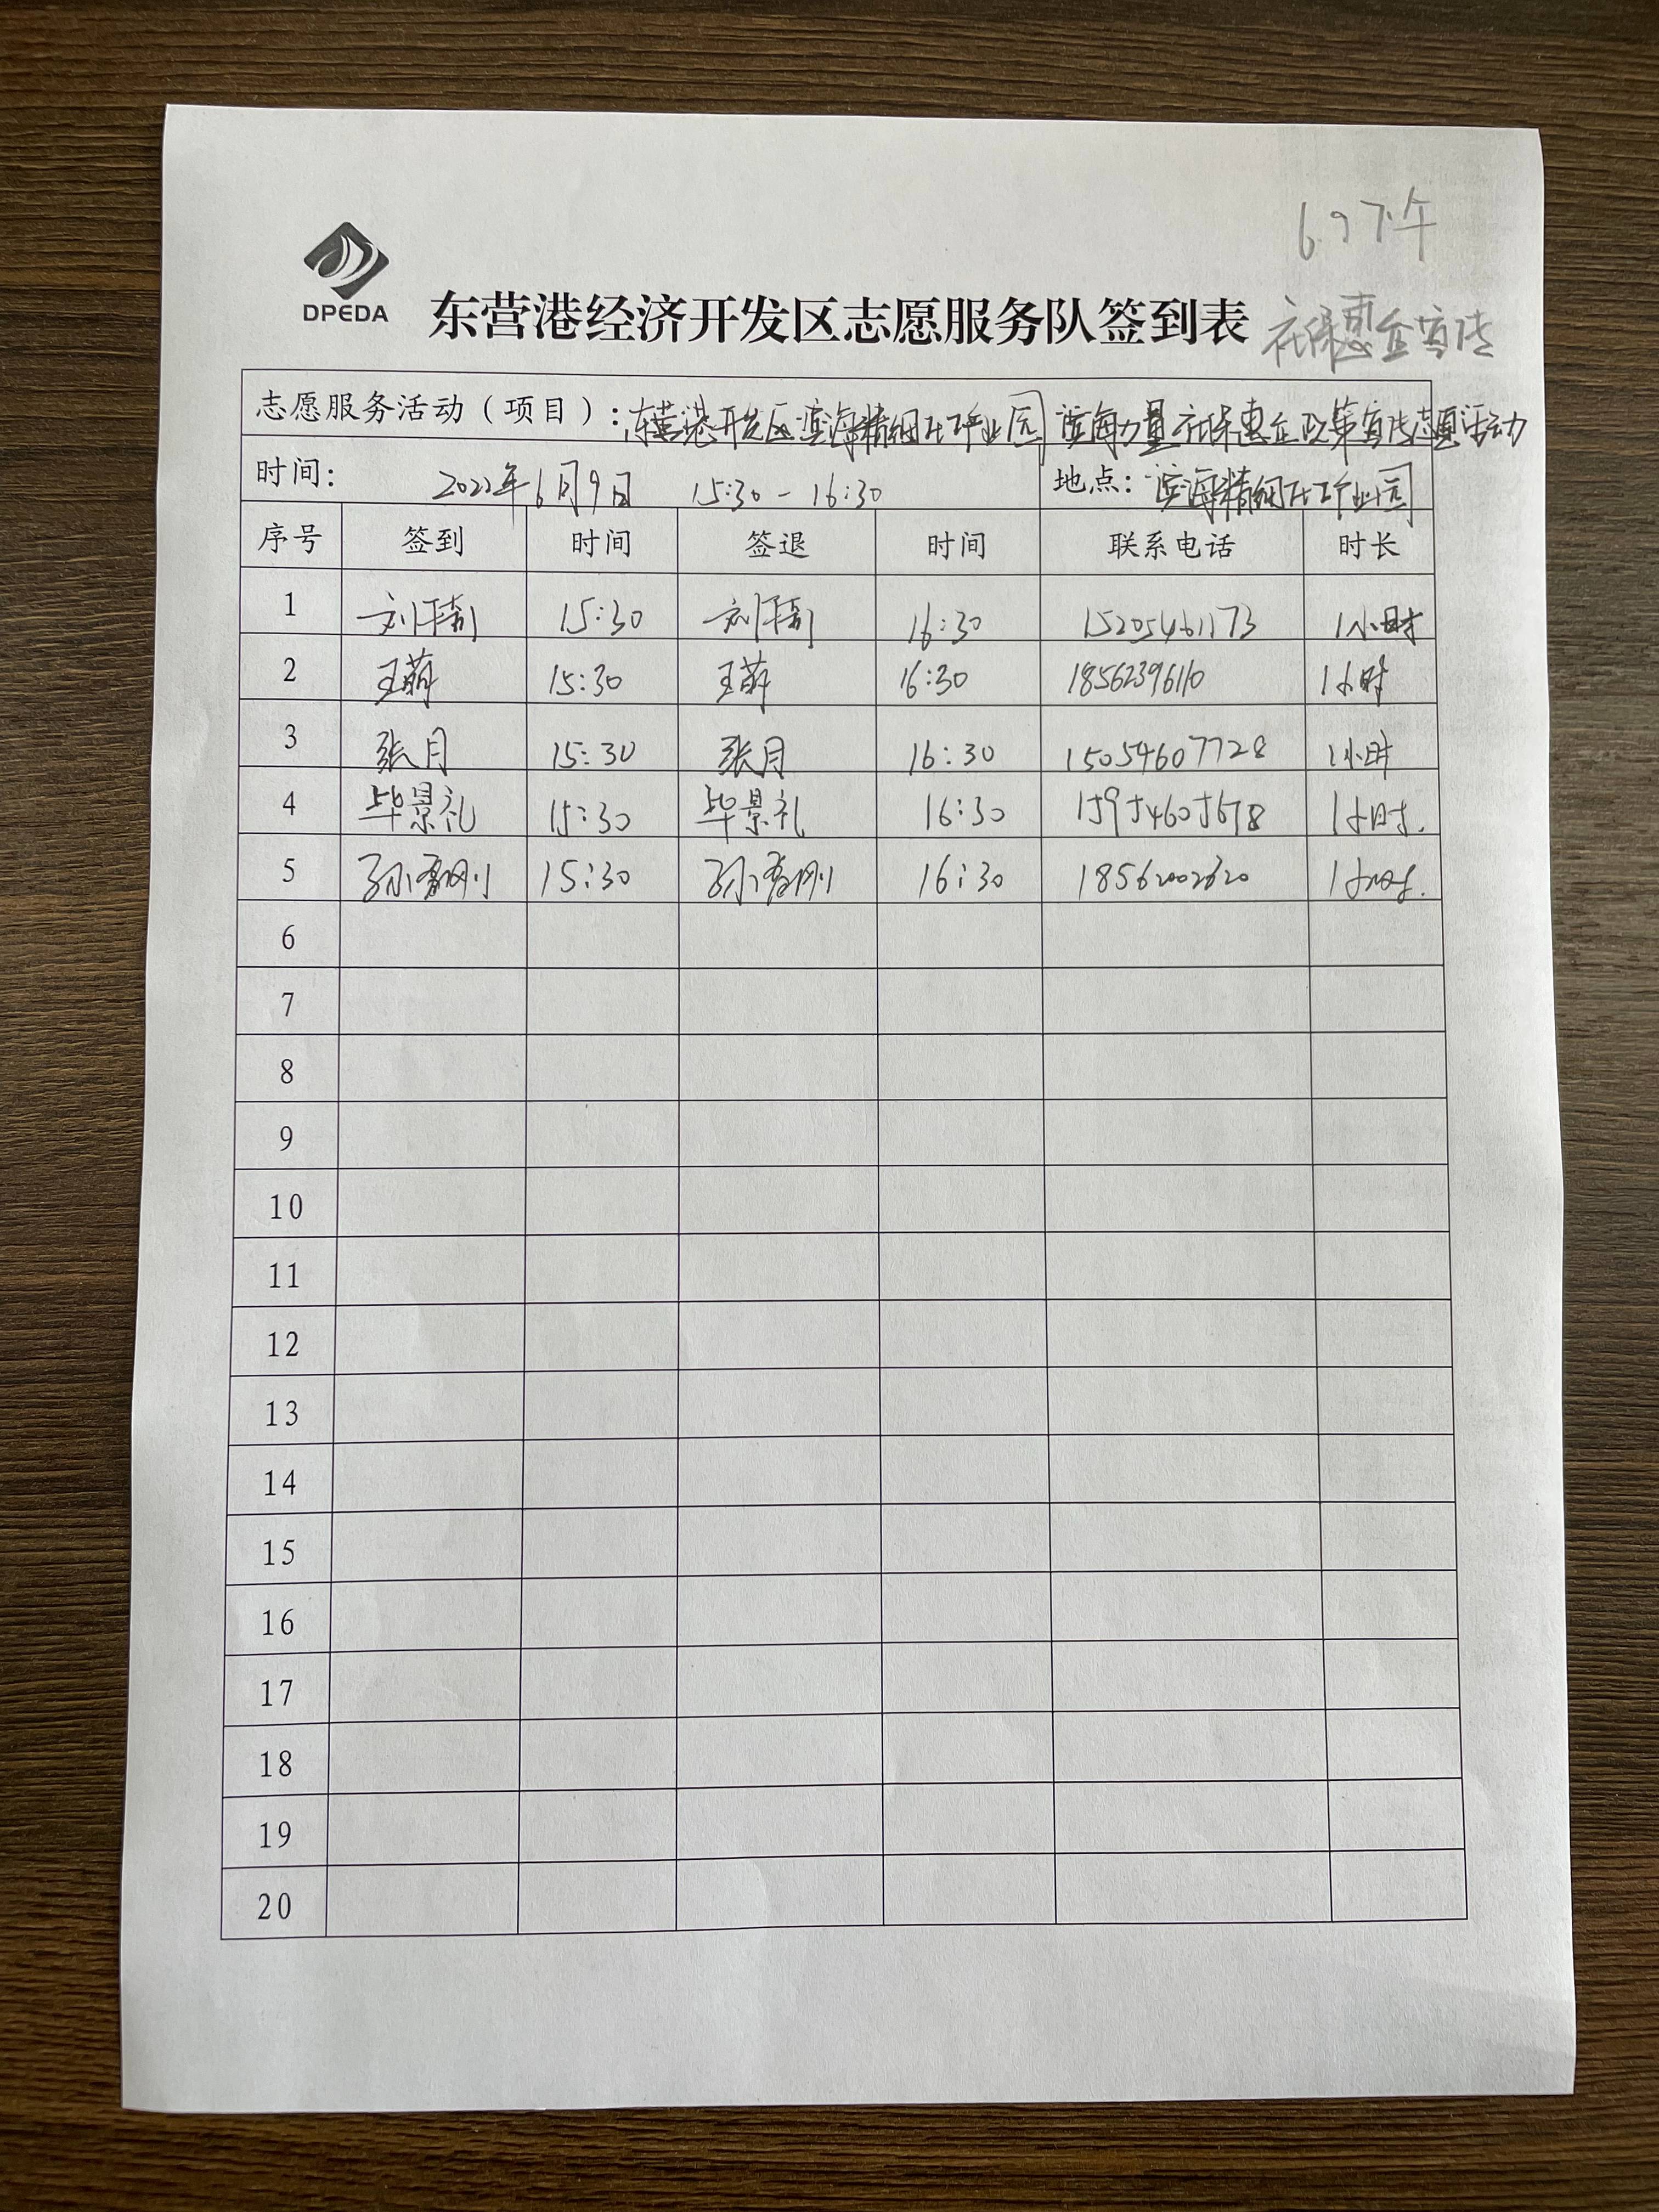 6.9下午
DPEDA
东营港经济开发区志愿服务队签到表
社保惠企宣传
志愿服务活动（项目）：东营港开发区滨海精细化工产业园 滨海力量 社保惠企政策宣传志愿活动
时间： 2022年6月9日 15:30-16:30 地点：滨海精细化工产业园
序号 签到 时间 签退 时间 联系电话 时长
1 15:30 16:30 15205461173 1小时
2 王萌 15:30 王萌 16:30 18562396110 1小时
3 张月 15:30 张月 16:30 15054607728 1小时
4 毕景礼 15:30 毕景礼 16:30 15954605678 1小时.
5 15:30 16:30 18562002620 1小时.
6
7
8
9
10
11
12
13
14
15
16
17
18
19
20